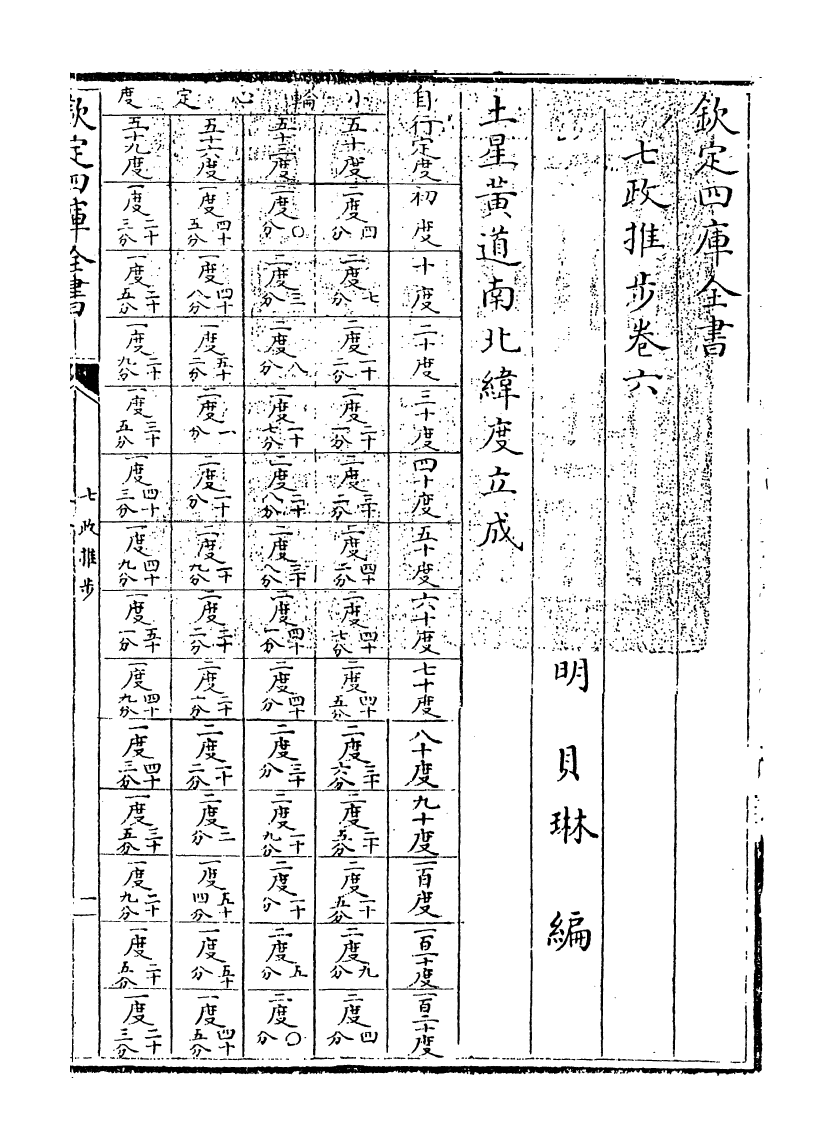 欽定四庫全書
七政推步卷六
明 貝琳 編
土星黄道南北緯度立成
自行定度 初度 十度 二十度 三十度 四十度 五十度 六十度 七十度 八十度 九十度 一百度 一百一十度 一百二十度
小輪心定度
五十度 二度四分 二度七分 二度一十二分 二度二十一分 二度三十二分 二度四十二分 二度四十七分 二度四十五分 二度三十六分 二度二十五分 二度一十五分 二度九分 二度四分
五十三度 二度〇分 二度三分 二度八分 二度一十七分 二度二十八分 二度三十八分 二度四十一分 二度四十分 二度三十分 二度一十九分 二度一十分 二度五分 二度〇分
五十六度 一度四十五分 一度四十八分 一度五十二分 二度一分 二度一十分 二度一十九分 二度二十二分 二度二十一分 二度一十二分 二度二分 一度五十四分 一度五十分 一度四十五分
五十九度 一度二十三分 一度二十五分 一度二十九分 一度三十五分 一度四十三分 一度四十九分 一度五十一分 一度四十九分 一度四十三分 一度三十五分 一度二十九分 一度二十五分 一度二十三分
欽定四庫全書
七政推步
一